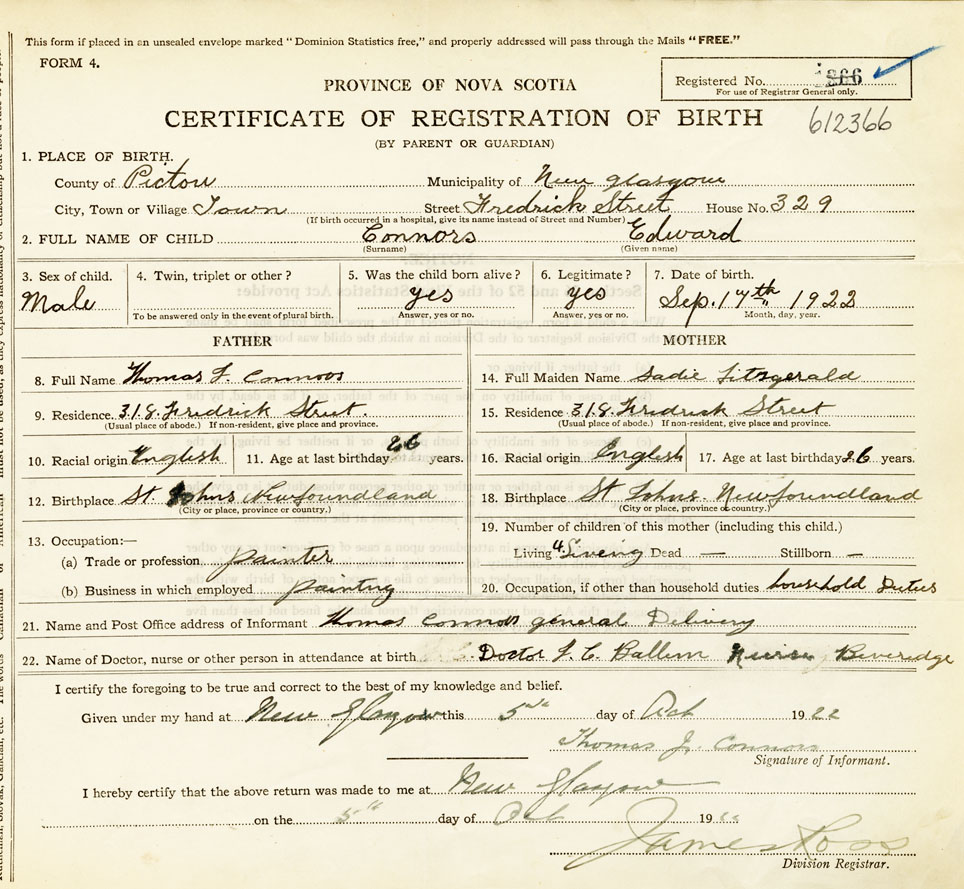 This form if placed in an unsealed envelope marked "Dominion Statistics free," and properly addressed will pass through the Mails "FREE."
FORM 4.
Registered No.
For use of Registrar General only.
PROVINCE OF NOVA SCOTIA
CERTIFICATE OF REGISTRATION OF BIRTH 612366
(BY PARENT OR GUARDIAN)
1. PLACE OF BIRTH.
County of Pictou Municipality of New Glasgow
City, Town or Village Town Street Fredrick Street House No. 329
(If birth occurred in a hospital, give its name instead of Street and Number)
2. FULL NAME OF CHILD Connors Edward
(Surname) (Given name)
3. Sex of child. Male
4. Twin, triplet or other?
To be answered only in the event of plural birth.
5. Was the child born alive? yes
Answer, yes or no.
6. Legitimate? yes
Answer, yes or no.
7. Date of birth.
Sep. 17th 1922
Month, day, year.
FATHER
8. Full Name Thomas J. Connors
9. Residence 318 Fredrick Street.
(Usual place of abode.) If non-resident, give place and province.
10. Racial origin English 11. Age at last birthday 26 years.
12. Birthplace St Johns Newfoundland
(City or place, province or country.)
13. Occupation:—
(a) Trade or profession painter
(b) Business in which employed painting
MOTHER
14. Full Maiden Name Sadie Fitzgerald
15. Residence 318 Fredrick Street
(Usual place of abode.) If non-resident, give place and province.
16. Racial origin English 17. Age at last birthday 26 years.
18. Birthplace St Johns. Newfoundland
(City or place, province or country.)
19. Number of children of this mother (including this child.)
Living 4 Liveing Dead — Stillborn —
20. Occupation, if other than household duties household Duties
21. Name and Post Office address of Informant Thomas Connors general Delivery
22. Name of Doctor, nurse or other person in attendance at birth Doctor Nurse Beveridge
I certify the foregoing to be true and correct to the best of my knowledge and belief.
Given under my hand at New Glasgow this 5th day of Oct 1922
Thomas J. Connors
Signature of Informant.
I hereby certify that the above return was made to me at New Glasgow
on the 5th day of Oct 19
James Ross
Division Registrar.